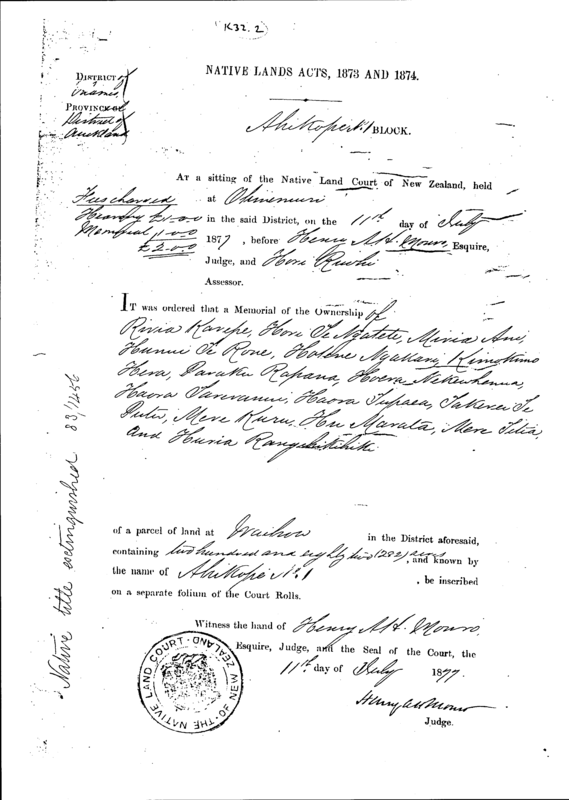 K32.2
NATIVE LANDS ACTS, 1873 AND 1874.
DISTRICT of
Thames
PROVINCE of
District of
Auckland
Ahikope No 1 BLOCK.
AT a sitting of the Native Land Court of New Zealand, held
at Ohinemuri
in the said District, on the 11th day of July
1877, before Henry A H Monro, Esquire,
Judge, and Hori Riwhi
Assessor.
Fees charged
Hearing £1-0-0
Memorial 1-0-0
£2-0-0
IT was ordered that a Memorial of the Ownership of
Karepe, Hori Te Ngatete, Ani,
Te Rone, Hotene
Hera, Paraku Rapana, Hoera
Haora Tareranui, Haora Tupaea, Te
Mere Kuru, Mere Titia,
and Huria
of a parcel of land at Waihou in the District aforesaid,
containing two hundred and eighty two (282) acres, and known by
the name of Ahikope No 1, be inscribed
on a separate folium of the Court Rolls.
Witness the hand of Henry A H Monro
Esquire, Judge, and the Seal of the Court, the
11th day of July 1877.
Henry A H Monro
Judge.
THE NATIVE LAND COURT OF NEW ZEALAND
Native title extinguished 83/1456